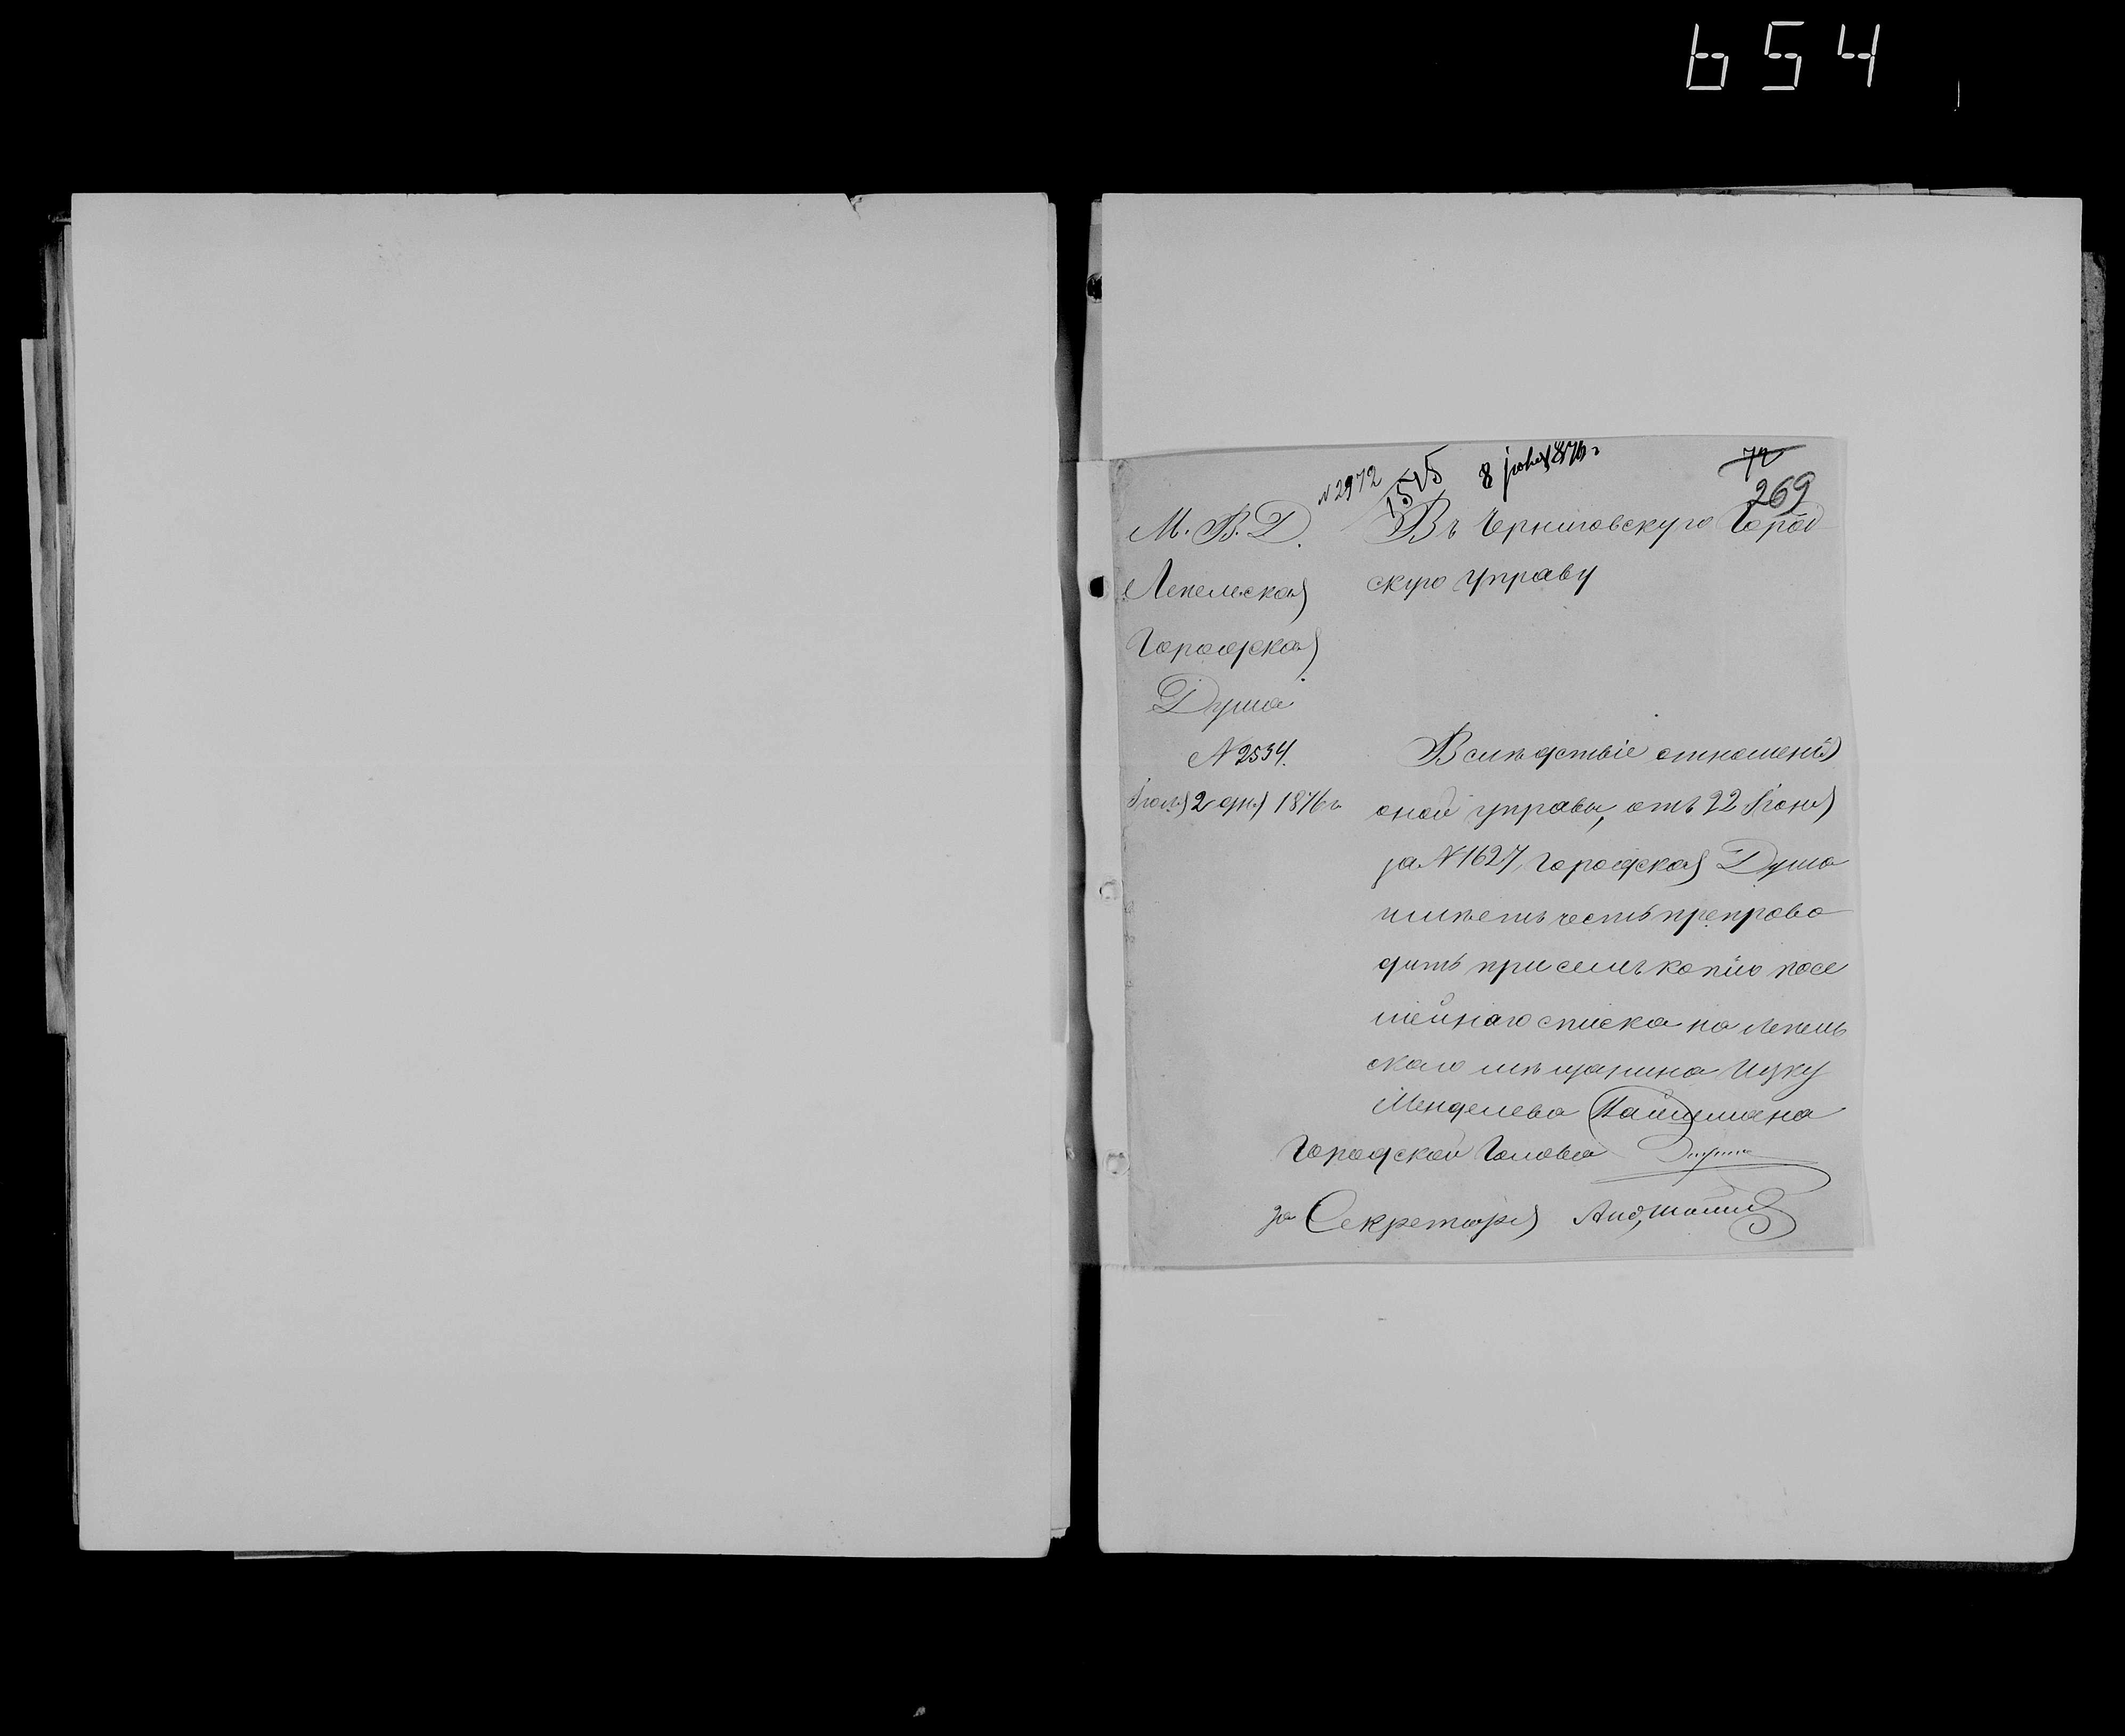 654
№ 2972
1515
8 июля 1876 г
72
269
М. В. Д.
Лепельская
Городская
Дума
№ 2534.
Июля 2 дня 1876 г.
Въ Черниговскую Город
скую управу
Вслѣдствіе отношенія
оной управы, отъ 22 Іюня
за № 1627, Городская Дума
имѣетъ честь препрово
дить при семъ копію посе
мейнаго списка на лепель
скаго мѣщанина Ицку
Менделева
Городской Голова
за Секретаря